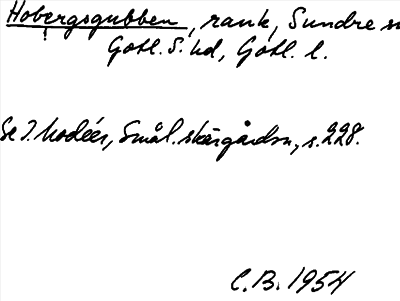 Hobergsgubben, rauk, Sundre sn
Gotl. S. hd, Gotl. l.
Se I. Modéer, Smål. skärgårdsn, s. 228.
C.B. 1954